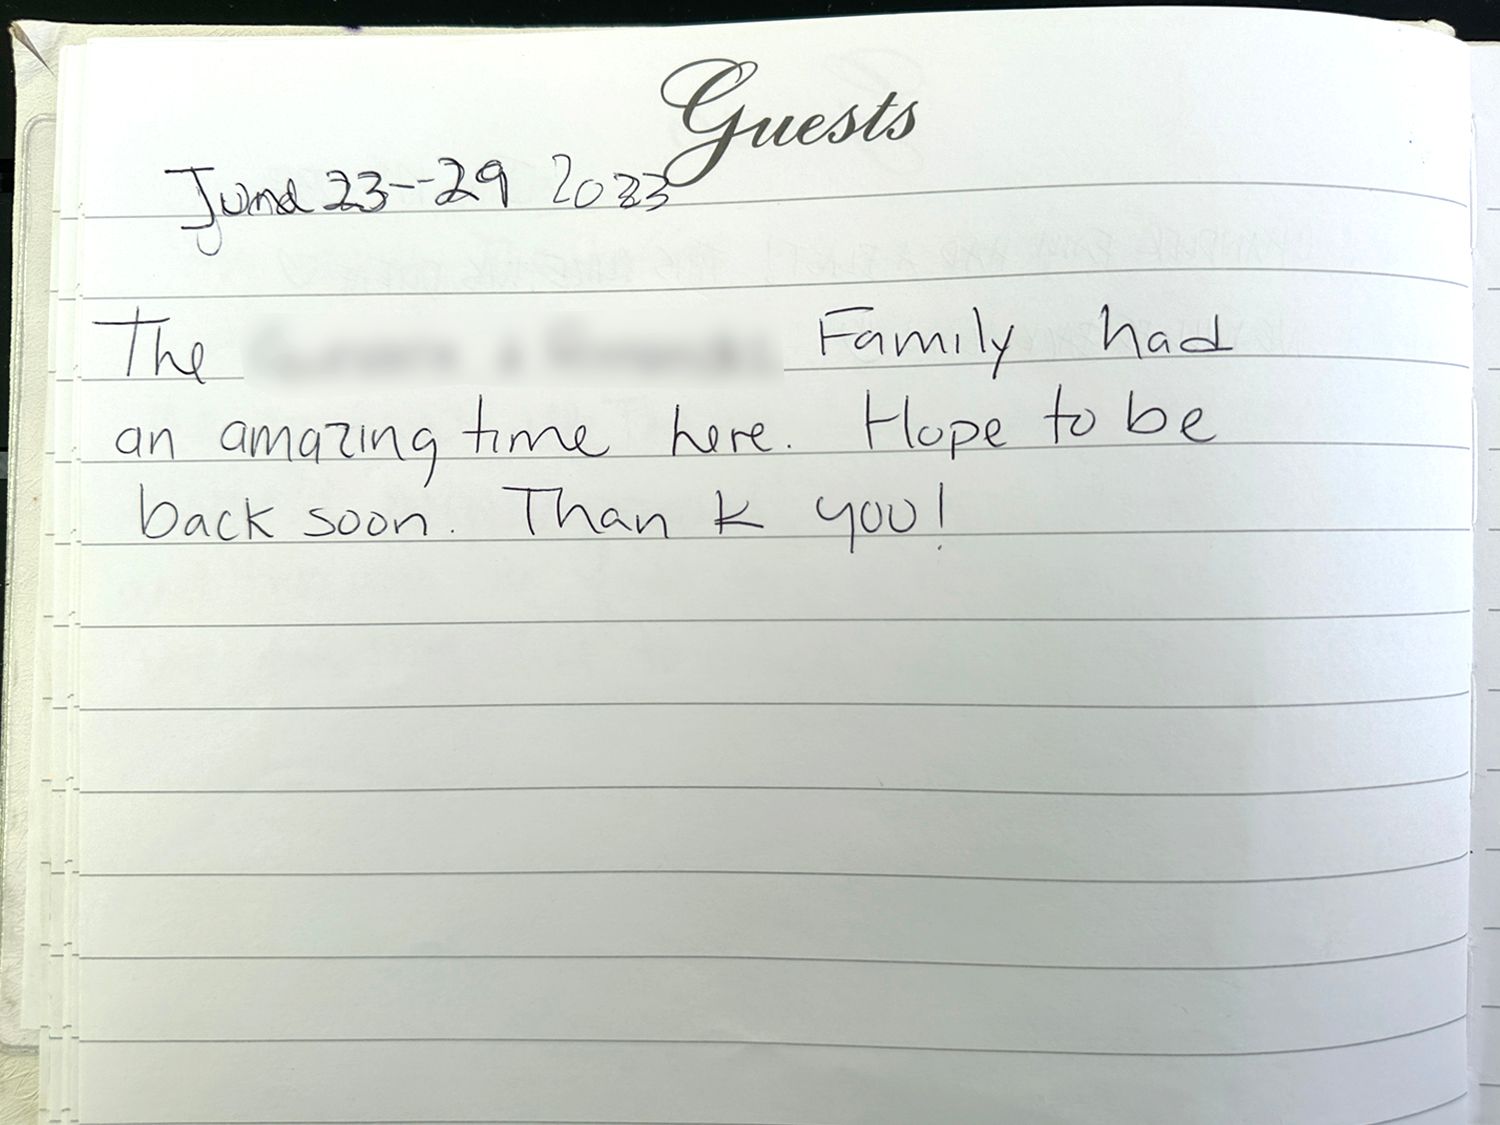 Guests
June 23--29 2023
The Family had
an amazing time here. Hope to be
back soon. Thank you!